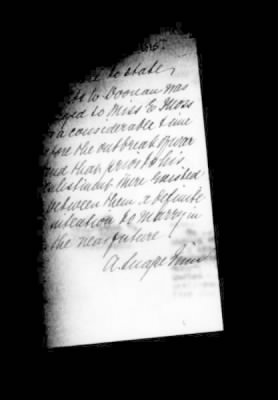 to state,
W Doonan was
to Miss E Moss
a considerable time
the outbreak of war
and that prior to his
enlistment there existed
between them a definite
intention to marry in
the near future